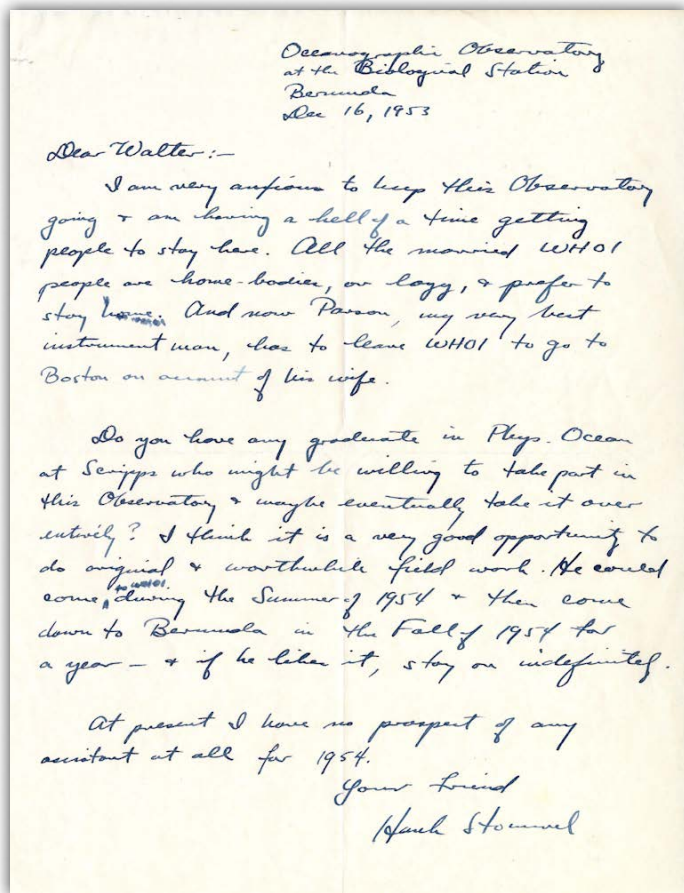 Oceanographic Observatory
at the Biological Station
Bermuda
Dec 16, 1953
Dear Walter:-
I am very anxious to keep this Observatory
going & am having a hell of a time getting
people to stay here. All the married WHOI
people are home-bodies, or lazy, & prefer to
stay home. And now Parson, my very best
instrument man, has to leave WHOI to go to
Boston on account of his wife.
Do you have any graduate in Phys. Ocean
at Scripps who might be willing to take part in
this Observatory & maybe eventually take it over
entirely? I think it is a very good opportunity to
do original & worthwhile field work. He could
come to WHOI during the Summer of 1954 & then come
down to Bermuda in the Fall of 1954 for
a year - & if he likes it, stay on indefinitely.
At present I have no prospect of any
assistant at all for 1954.
Your friend
Hank Stommel